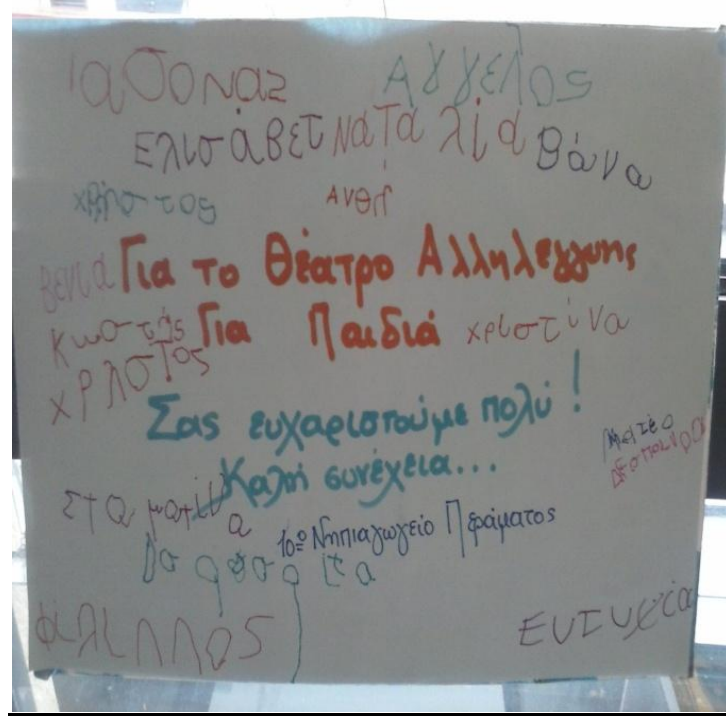 ιασονας Αγγελος
Ελισάβετ νατά λία θάνα
χρήστος Ανθή
βενια Για το Θέατρο Αλληλεγγύης
Κωστής Για Παιδιά χριστίνα
χρηστος
Σας ευχαριστούμε πολύ!
Ματέο
Καλή συνέχεια...
Δεσποινα
Σταματίνα
10ο Νηπιαγωγείο Περάματος
φιλιππος Ευτυχεία